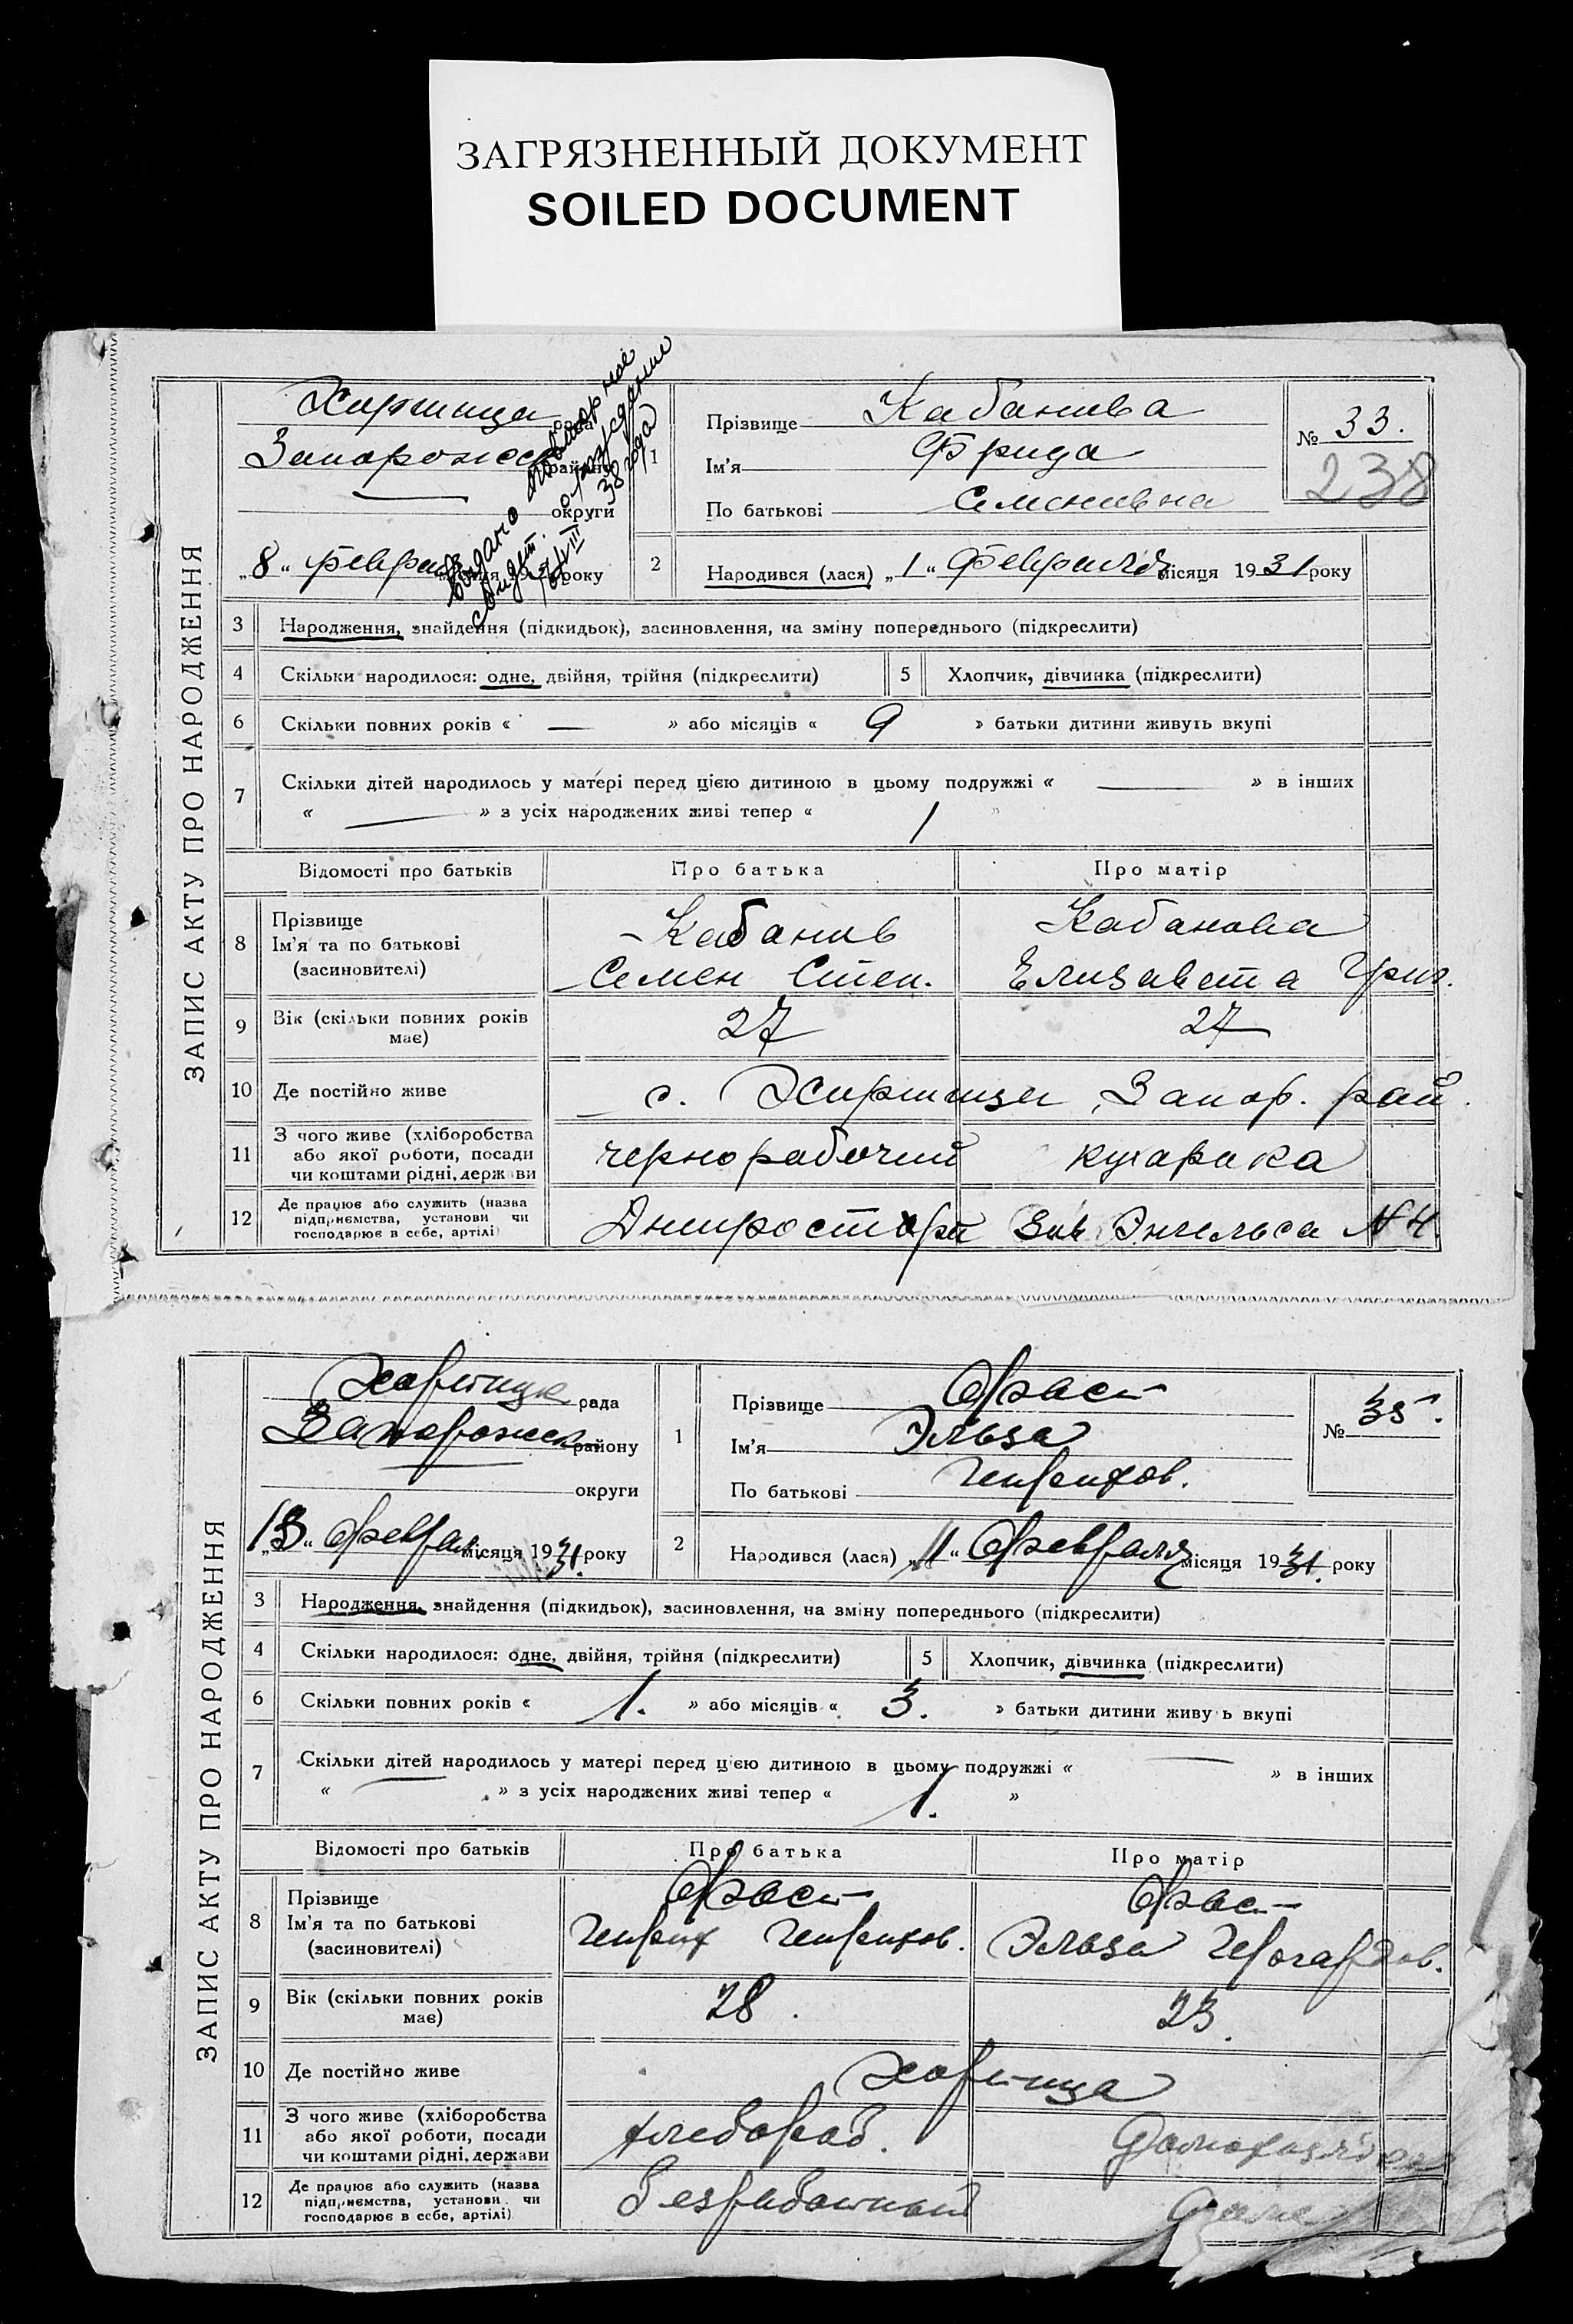 ЗАГРЯЗНЕННЫЙ ДОКУМЕНТ
SOILED DOCUMENT
ЗАПИС АКТУ ПРО НАРОДЖЕННЯ
Хиртица рада
Запорожск району
округи
„8“ февраля місяця 1931 року
Выдано повторное
свидет. о рождении
38 года
1
Прізвище Кабанива
Ім’я Фрида
По батькові Семенивна
№ 33.
238
2
Народився (лася) „1“ Февраля місяця 1931 року
3 Народження, знайдення (підкидьок), засиновлення, на зміну попереднього (підкреслити)
4 Скільки народилося: одне, двійня, трійня (підкреслити) 5 Хлопчик, дівчинка (підкреслити)
6 Скільки повних років « — » або місяців « 9 » батьки дитини живуть вкупі
7 Скільки дітей народилось у матері перед цією дитиною в цьому подружжі « — » в інших
« — » з усіх народжених живі тепер « 1 »
Відомості про батьків Про батька Про матір
8 Прізвище
Ім’я та по батькові
(засиновителі)
Кабанив
Семен Степ.
Кабанова
Елизавета Григ.
9 Вік (скільки повних років
має)
27 27
10 Де постійно живе с. Хиртици, Запор. рай.
11 З чого живе (хліборобства
або якої роботи, посади
чи коштами рідні, держави
чернорабочий кухарка
12 Де працює або служить (назва
підприємства, установи чи
господарює в себе, артілі)
Днипрострой Зав Энгельса №4
ЗАПИС АКТУ ПРО НАРОДЖЕННЯ
Хортицк рада
Запорожск району
округи
„13“ Феврал місяця 1931. року
1
Прізвище Фраст
Ім’я Эльза
По батькові Генрихов.
№ 35.
2
Народився (лася) „11“ Февраля місяця 1931. року
3 Народження, знайдення (підкидьок), засиновлення, на зміну попереднього (підкреслити)
4 Скільки народилося: одне, двійня, трійня (підкреслити) 5 Хлопчик, дівчинка (підкреслити)
6 Скільки повних років « 1. » або місяців « 3. » батьки дитини живу ь вкупі
7 Скільки дітей народилось у матері перед цією дитиною в цьому подружжі « — » в інших
« — » з усіх народжених живі тепер « 1. »
Відомості про батьків Про батька Про матір
8 Прізвище
Ім’я та по батькові
(засиновителі)
Фраст
Генрих Генрихов.
Фраст
Эльза
9 Вік (скільки повних років
має)
28. 23.
10 Де постійно живе Хортица
11 З чого живе (хліборобства
або якої роботи, посади
чи коштами рідні, держави
хлебороб. Домохозяйка
12 Де працює або служить (назва
підприємства, установи чи
господарює в себе, артілі)
безработный